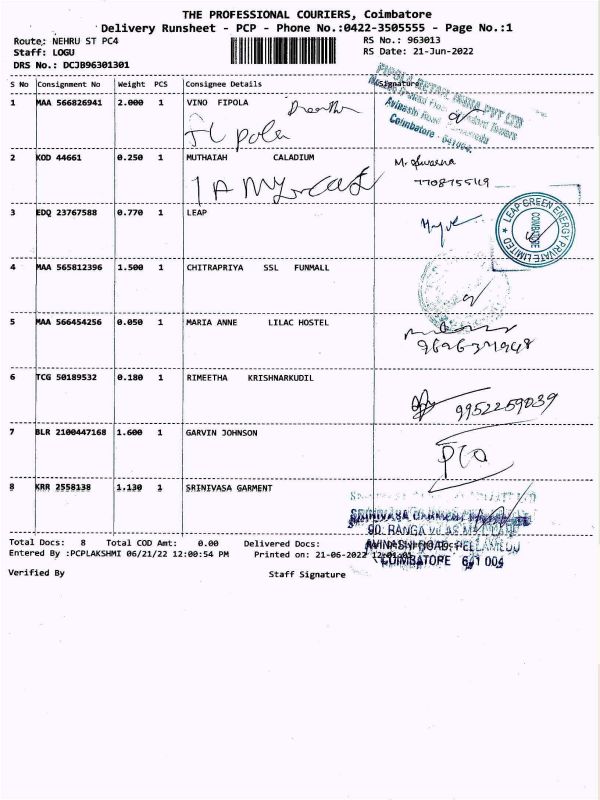 THE PROFESSIONAL COURIERS, Coimbatore
Delivery Runsheet - PCP - Phone No.:0422-3505555 - Page No.:1
Route: NEHRU ST PC4 RS No.: 963013
Staff: LOGU RS Date: 21-Jun-2022
DRS No.: DCJB96301301
S No Consignment No Weight PCS Consignee Details Signature
1 MAA 566826941 2.000 1 VINO FIPOLA
FIPOLA RETAIL INDIA PVT LTD
Avinash Road
Coimbatore - 641004.
Fipola
2 KOD 44661 0.250 1 MUTHAIAH CALADIUM
7708755119
3 EDQ 23767588 0.770 1 LEAP
LEAP GREEN ENERGY PRIVATE LIMITED
COIMBATORE
4 MAA 565812396 1.500 1 CHITRAPRIYA SSL FUNMALL
5 MAA 566454256 0.050 1 MARIA ANNE LILAC HOSTEL
6 TCG 50189532 0.180 1 RIMEETHA KRISHNARKUDIL
9952259039
7 BLR 2100447168 1.600 1 GARVIN JOHNSON
8 KRR 2558138 1.130 1 SRINIVASA GARMENT
SRINIVASA GARMENT
90, RANGA VILAS
AVINASHI ROAD, PEELAMEDU
COIMBATORE 641 004
Total Docs: 8 Total COD Amt: 0.00 Delivered Docs:
Entered By :PCPLAKSHMI 06/21/22 12:00:54 PM Printed on: 21-06-2022 12:01:01
Verified By Staff Signature